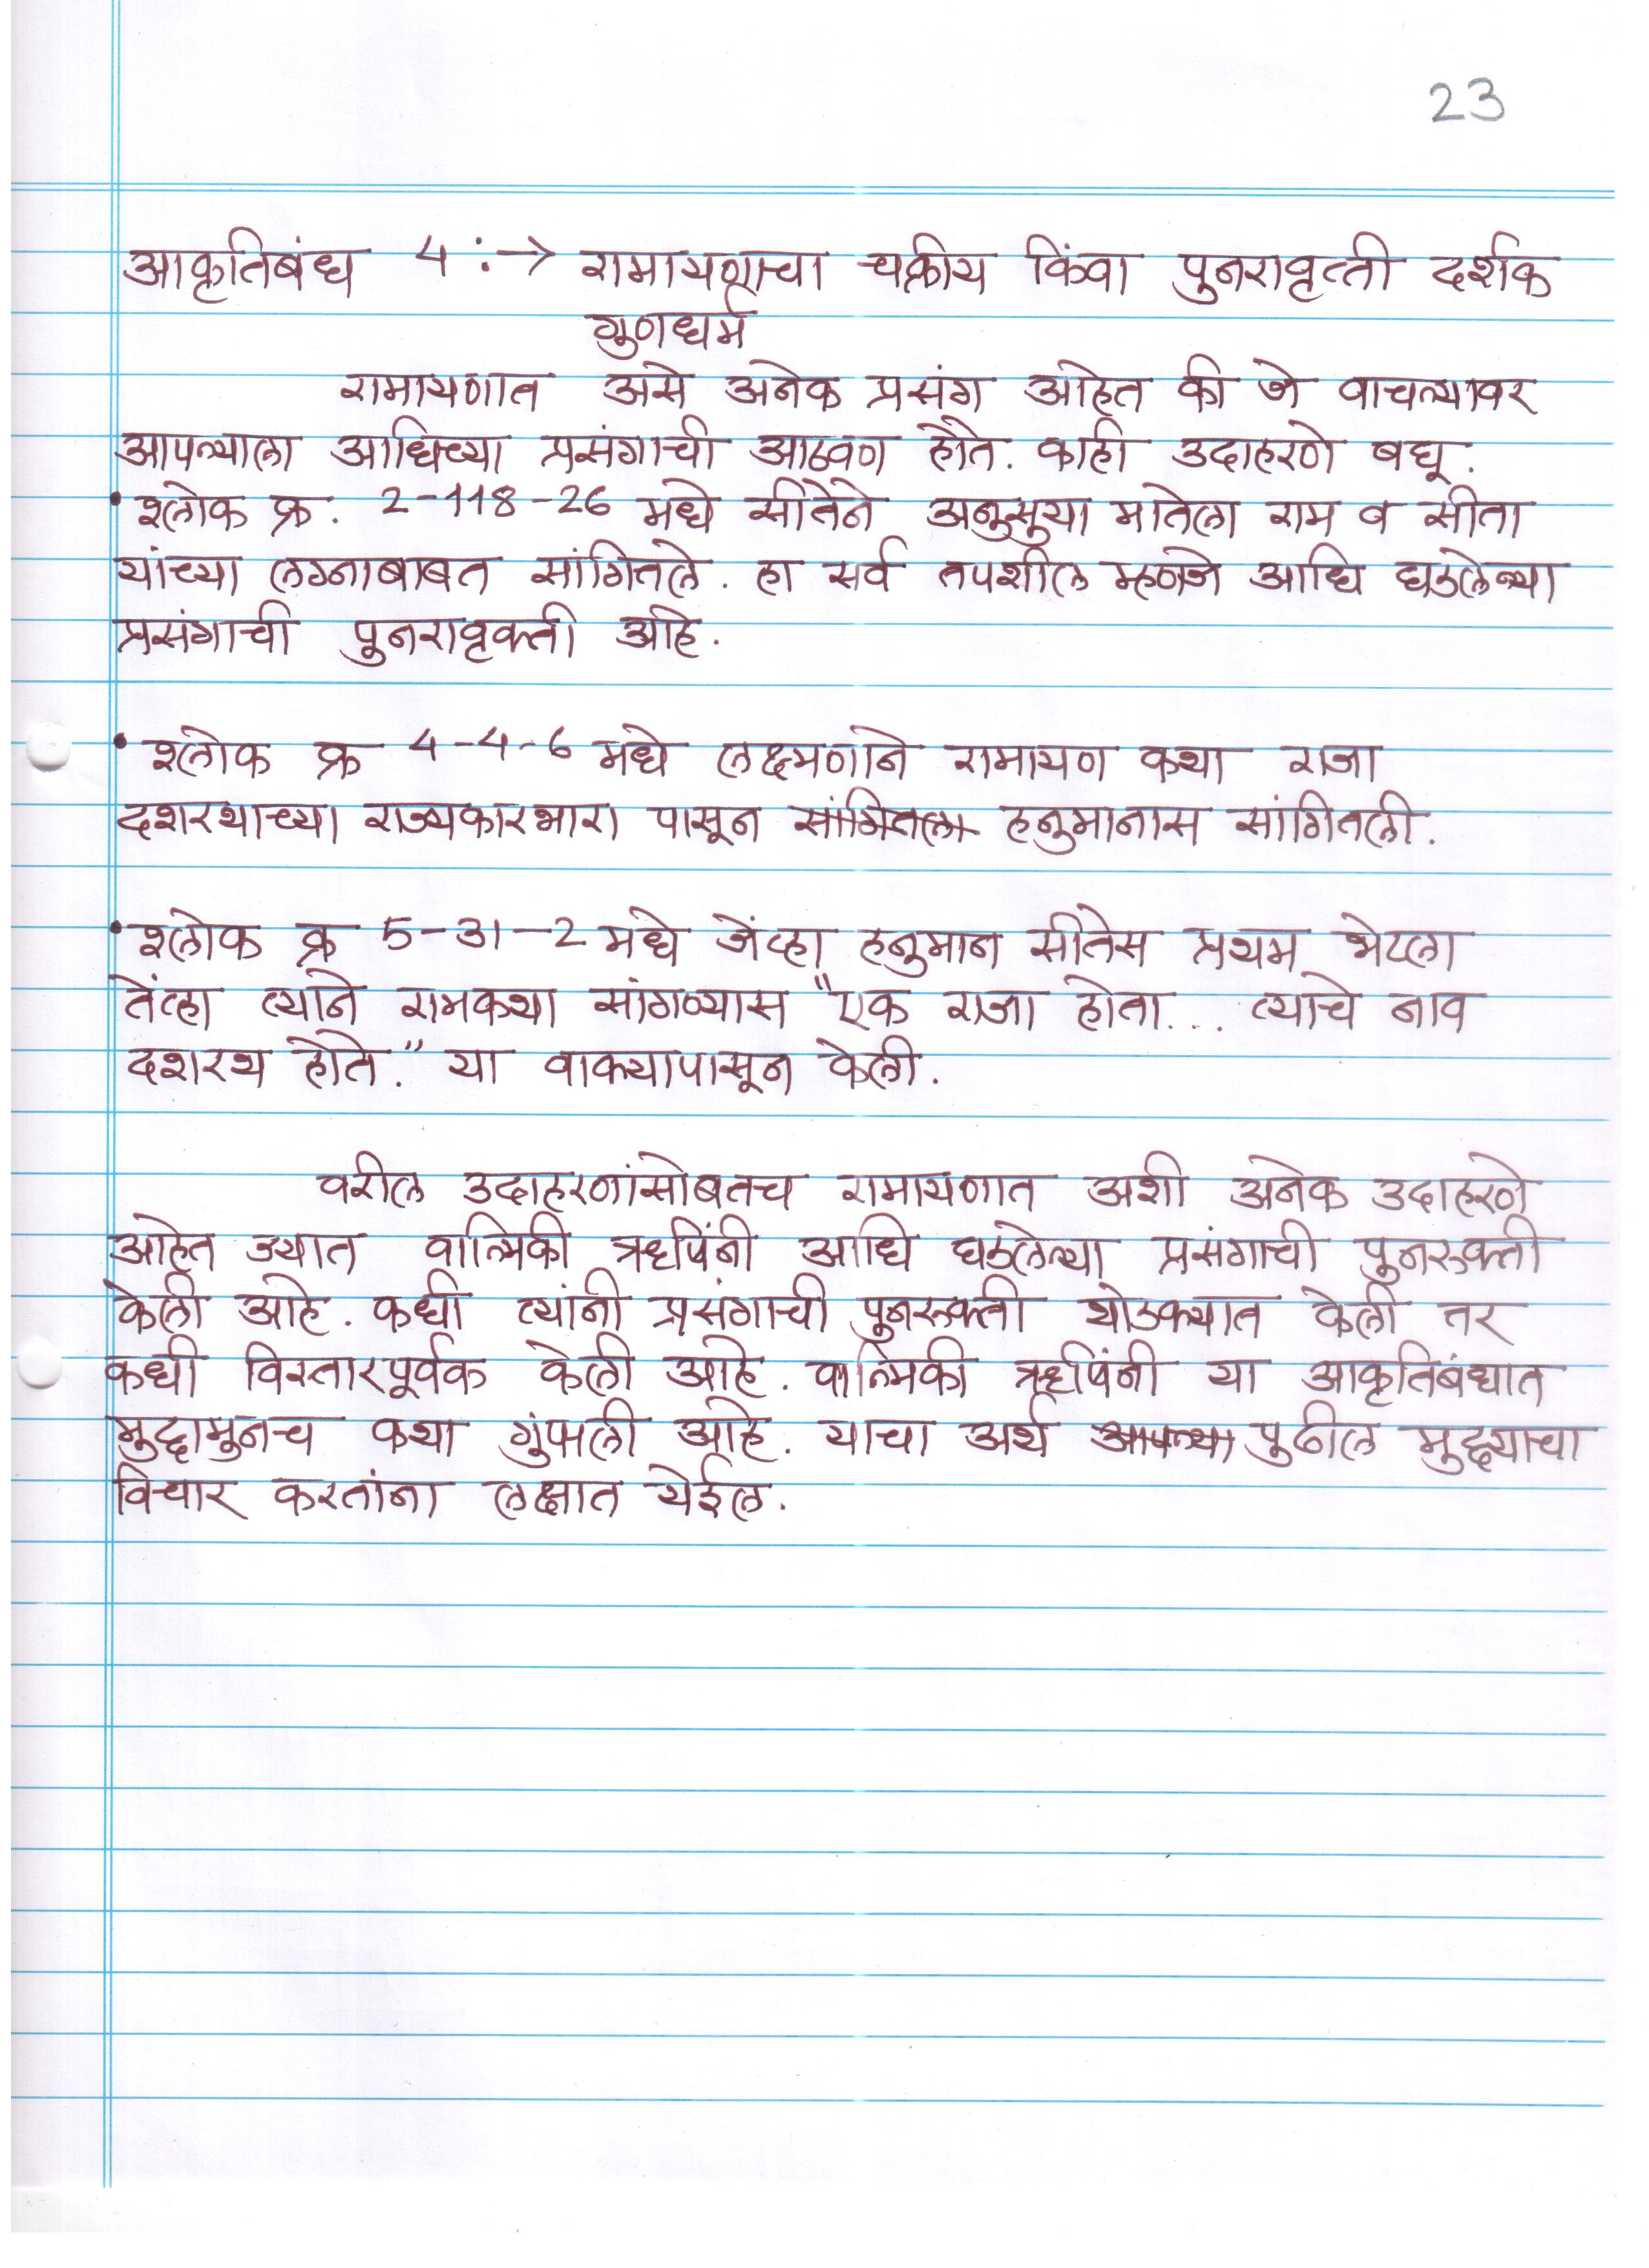 23
आकृतिबंध 4 :→ रामायणाचा चक्रीय किंवा पुनरावृत्ती दर्शक
गुणधर्म
रामायणात असे अनेक प्रसंग आहेत की जे वाचल्यावर
आपल्याला आधिच्या प्रसंगाची आठवण होते. काही उदाहरणे बघू.
• श्लोक क्र. 2-118-26 मधे सीतेने अनुसुया मातेला राम व सीता
यांच्या लग्नाबाबत सांगितले. हा सर्व तपशील म्हणजे आधि घडलेल्या
प्रसंगाची पुनरावृक्ती आहे.
• श्लोक क्र 4-4-6 मधे लक्ष्मणाने रामायण कथा राजा
दशरथाच्या राज्यकारभारा पासून सांगितला हनुमानास सांगितली.
• श्लोक क्र 5-31-2 मधे जेंव्हा हनुमान सीतेस प्रथम भेटला
तेंव्हा त्याने रामकथा सांगण्यास "एक राजा होता... त्याचे नाव
दशरथ होते." या वाक्यापासून केली.
वरील उदाहरणांसोबतच रामायणात अशी अनेक उदाहरणे
आहेत ज्यात वाल्मिकी ऋषिंनी आधि घडलेल्या प्रसंगाची पुनरुक्ती
केली आहे. कधी त्यांनी प्रसंगाची पुनरुक्ती थोडक्यात केली तर
कधी विस्तारपूर्वक केली आहे. वाल्मिकी ऋषिंनी या आकृतिबंधात
मुद्दामुनच कथा गुंफली आहे. याचा अर्थ आपल्या पुढील मुद्द्याचा
विचार करतांना लक्षात येईल.